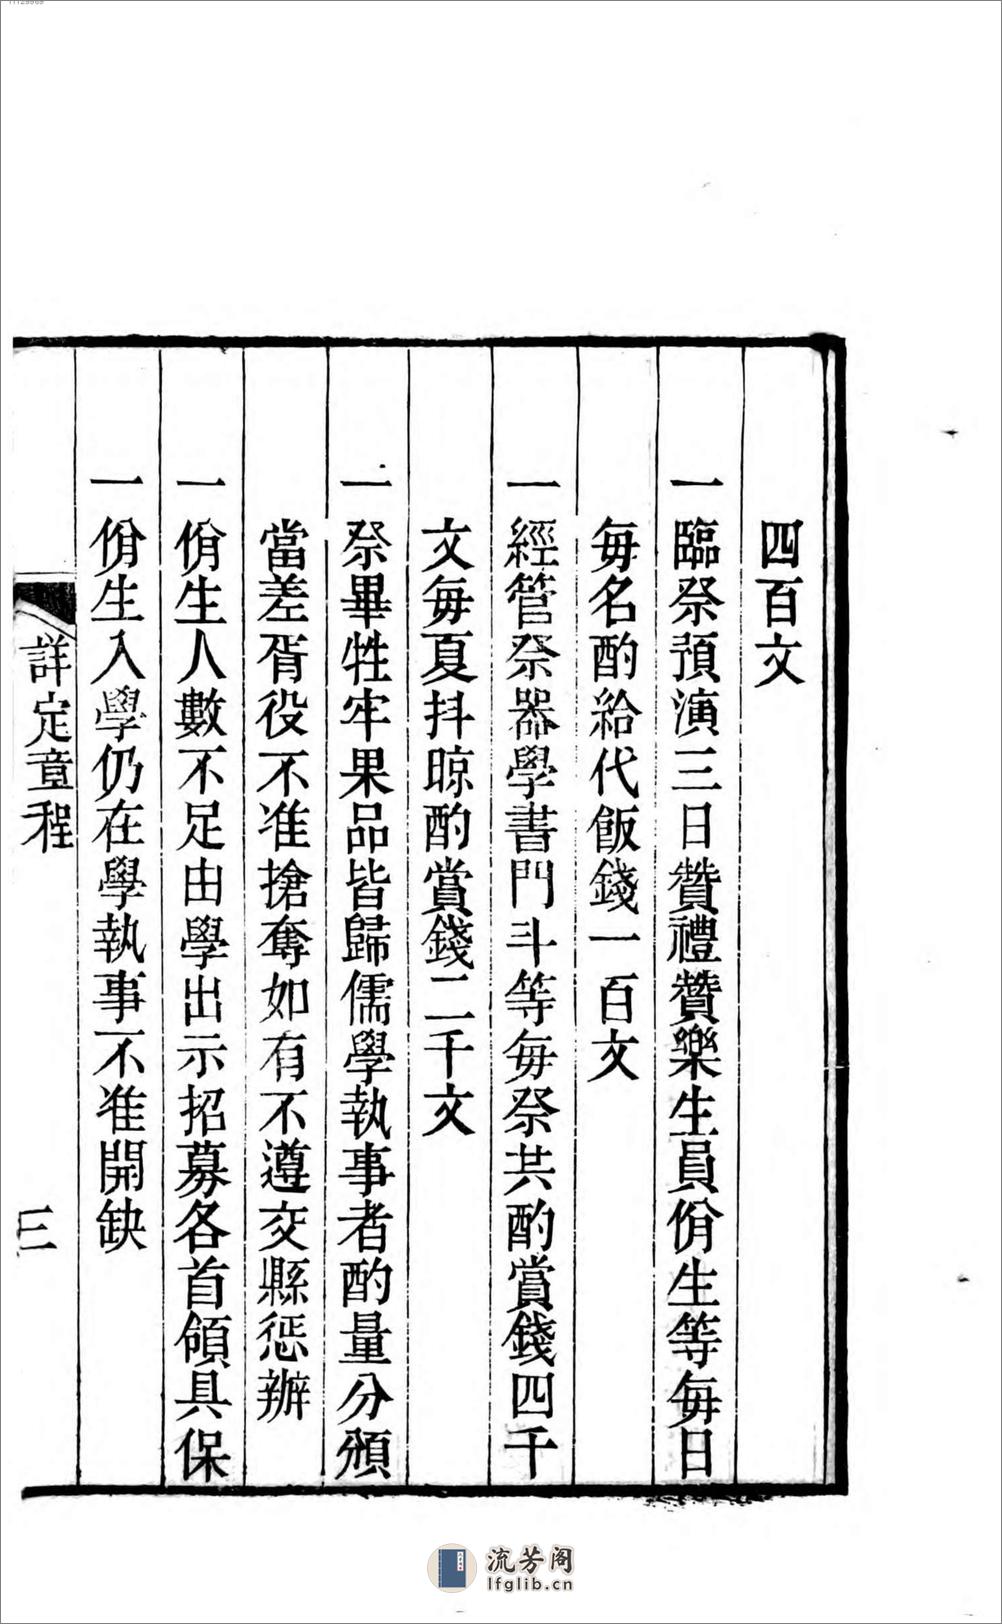 四百文
一臨祭預演三日贊禮贊樂生員佾生等每日
每名酌給代飯錢一百文
一經管祭器學書門斗等每祭共酌賞錢四千
文每夏抖晾酌賞錢二千文
一祭畢牲牢果品皆歸儒學執事者酌量分頒
當差胥役不准搶奪如有不遵交縣懲辦
一佾生人數不足由學出示招募各首領具保
一佾生入學仍在學執事不准開缺
詳定章程
三
流芳阁
lfglib.cn